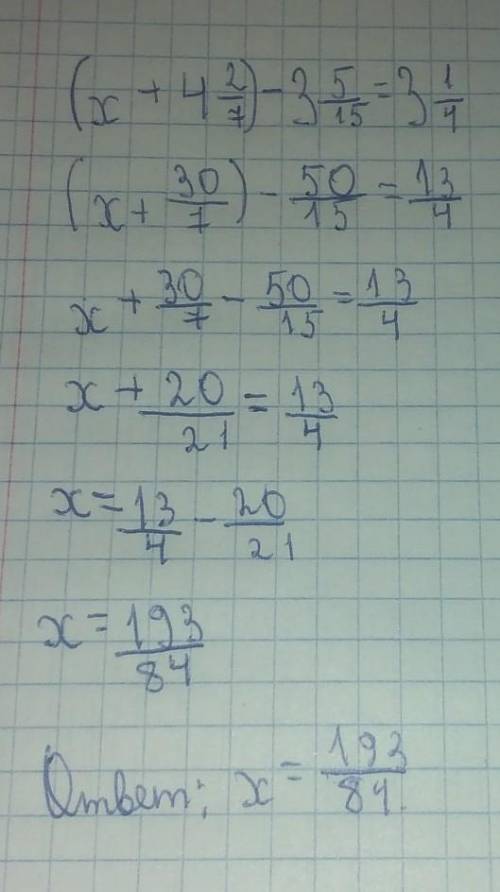 (x + 4 2/7) - 3 5/15 = 3 1/4
(x + 30/7) - 50/15 = 13/4
x + 30/7 - 50/15 = 13/4
x + 20/21 = 13/4
x = 13/4 - 20/21
x = 193/84
Ответ: x = 193/84.